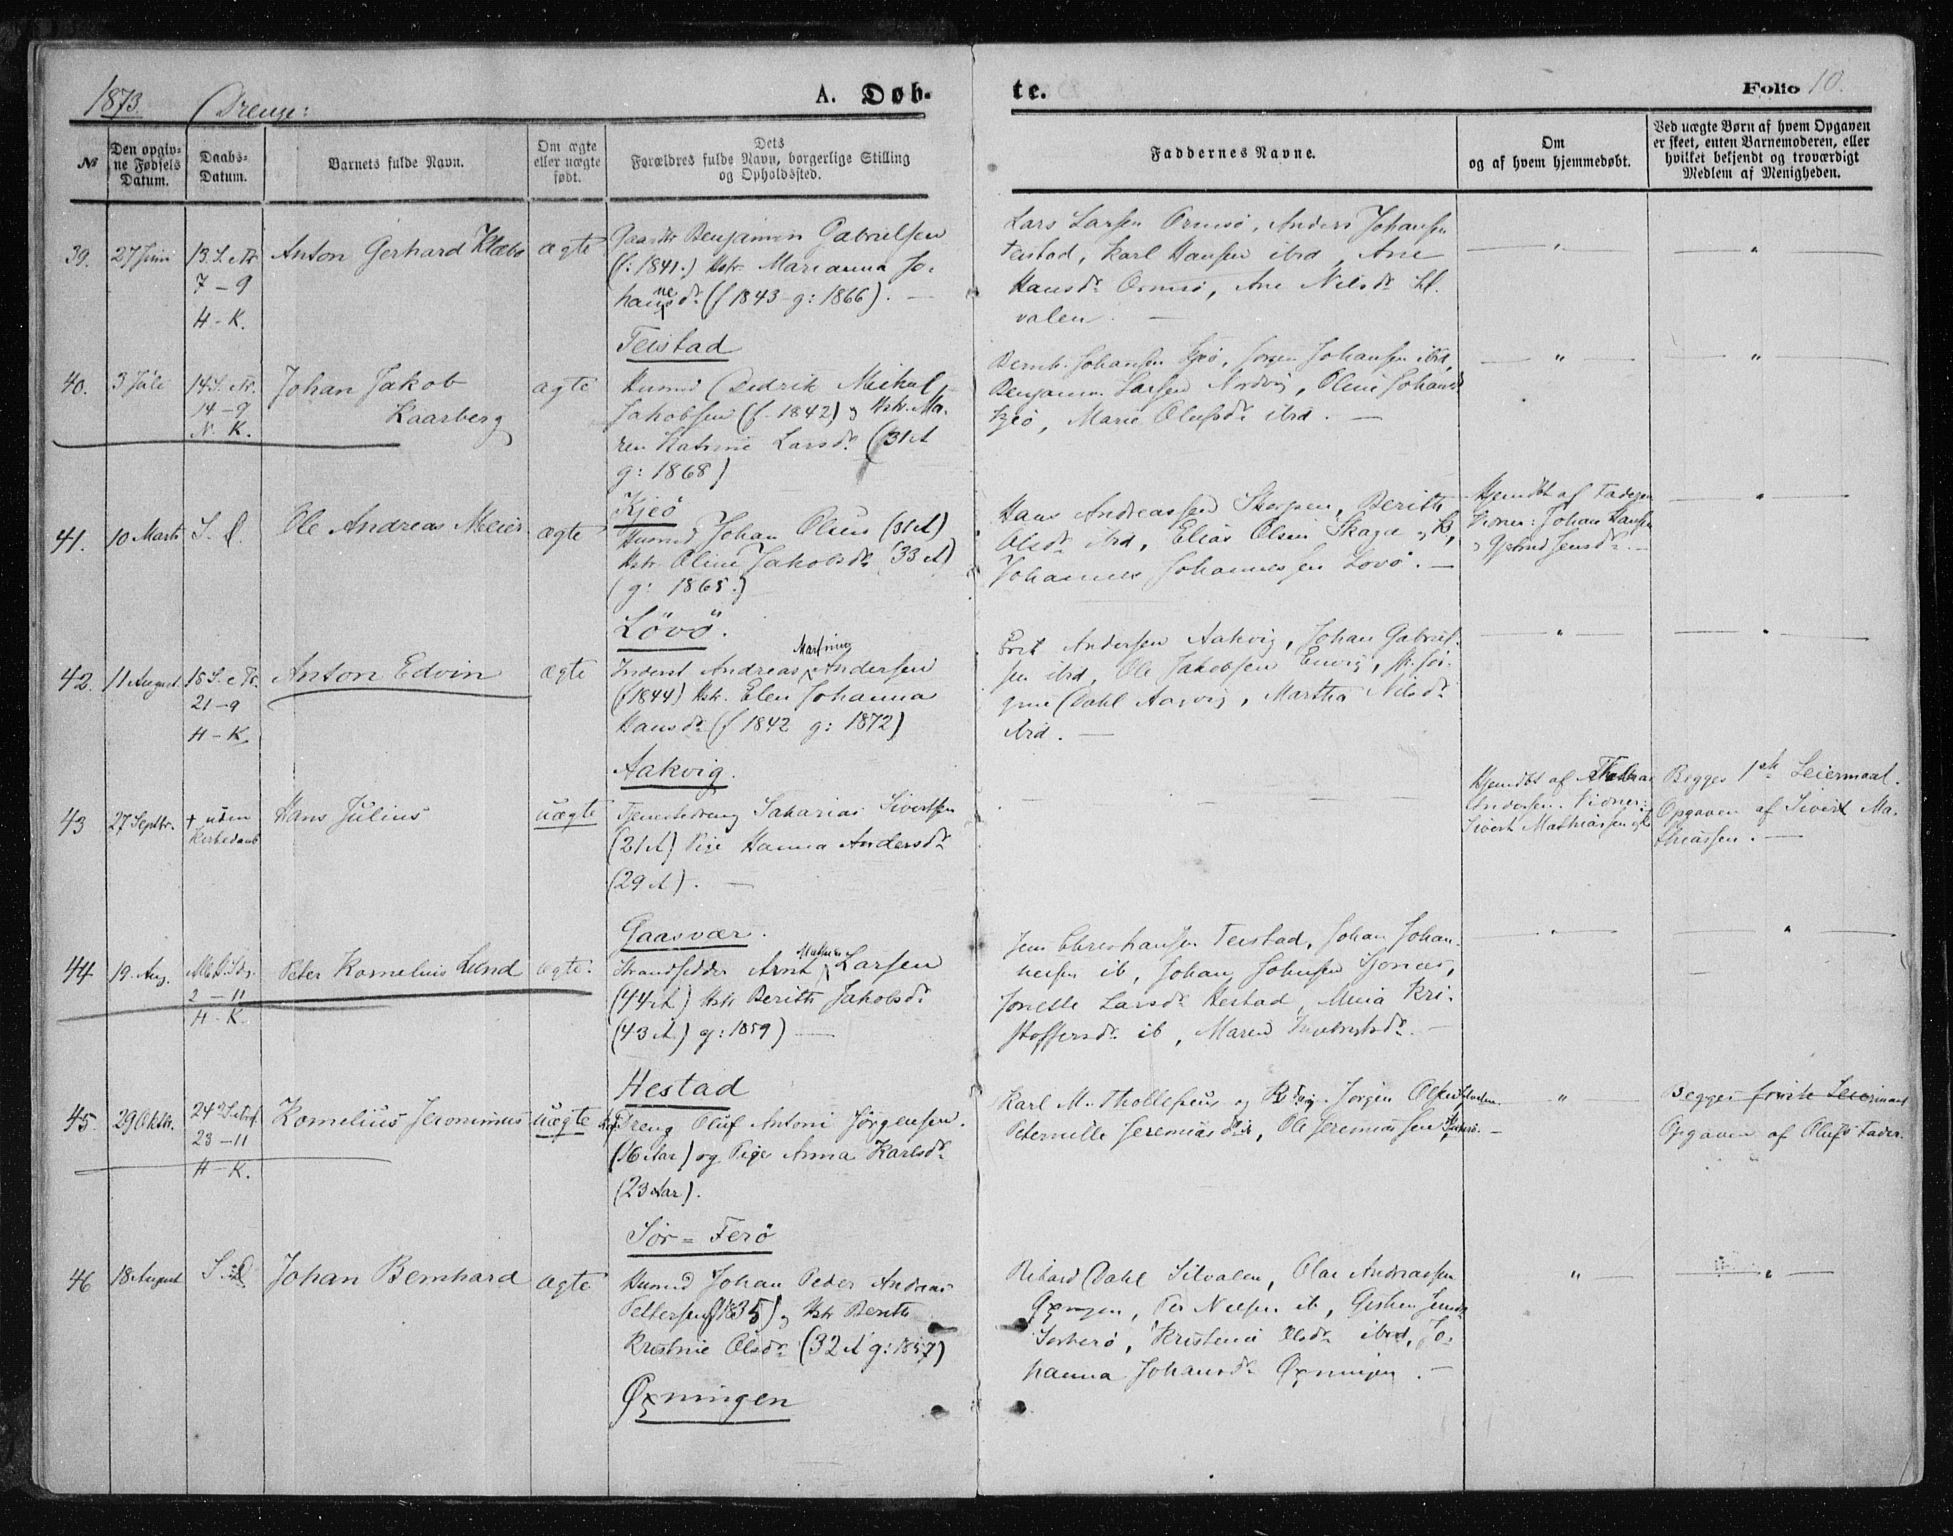 1873. Drenge:
A. Døb-
te.
Folio 10.
No
Den opgiv-
ne Fødsels
Datum.
Daabs-
Datum.
Barnets fulde Navn.
Om ægte
eller uægte
født.
Dets
Forældres fulde Navn, borgerlige Stilling
og Opholdssted.
Faddernes Navne.
Om
og af hvem hjemmedøbt.
Ved uægte Børn af hvem Opgaven
er skeet, enten Barnemoderen, eller
hvilket bekjendt og troværdigt
Medlem af Menigheden.
39.
27 Juni
13. S. e. Tr.
7-9
H-K.
Anton Gerhard Klæbo
ægte
Gaardbr Benjamin Gabrielsen
(f: 1841.) Hstr Marianna Jo-
hannesdr (f 1843 g: 1866).
Teistad
Lars Larsen Ormsø, Anders Johansen
Teistad, Karl Hansen ibid, Ane
Hansdr Ormsø, Ane Nilsdr Sil-
valen.
40.
3 Juli
14. S. e. Tr.
14-9
N. K.
Johan Jakob
Kaarberg
ægte
Husmd Didrik Mikal
Jakobsen (f. 1842) og Hstr. Ma-
ren Katrine Larsdr (31 A
g: 1868)
Kjeø
Bernh. Johansen Kjeø, Jørgen Johansen ibid,
Benjamin Larsen Nordvig, Oline Johansd
Kjeø, Marie Olufsdr ibid.
41.
10 Marts
S. D.
Ole Andreas Meier
ægte
Husmd Johan Olsen (31 A)
Hstr Oline Jakobsdr (33 A)
(g: 1865.)
Lövö.
Hans Andreassen Skogen, Berith
Olsdr ibid, Elias Olsen Skaga og K,
Johannes Johannessen Lovö.
Hjemdbt af
Vidner: Johan Hansen
42.
11 August
15 S. e. Tr.
21-9
H-K
Anton Edvin
ægte
Inderst Andreas Martinus Andersen
(f 1844) Hstr. Elen Johanna
Hansdr (f 1842 g: 1872)
Aakvig.
Erik Andersen Aakvig, Johan Gabriel-
sen ibid, Ole Jakobsen
Dahl Aagvig, Martha Nilsdr
ibid.
43
27 Septbr.
+ uden
Kirkedaab
Hans Julius
uægte
Tjenestedreng Sakarias Sivertsen
(21 A) Pige Hanna Andersdr
(29 A).
Gaasvær.
Hjemdbt af
Andersen. Vidner:
Sivert Mathiassen
Begges 1ste Leiermaal.
Opgaven af Sivert Ma-
thiassen.
44
19. Aug.
2-11
H-K.
Peter Kornelius Lund
ægte.
Strandsidder Arnt Larsen
(44 A) Hstr Berith Jakobsdr
(43 A) g: 1859)
Hestad
Jens Christiansen Teistad, Johan Johan-
nesen ib, Johan Johnsen
Jonette Larsdr Hestad, Kri-
stoffersdr ib, Maren
45.
29 Oktbr.
24de S. e. Tref
23-11
H-K.
Kornelius Jeronimus
uægte
Dreng Oluf Antoni Jørgensen.
(16 Aar) og Pige Anna Karlsdr
(23 Aar).
Sör-Ferö
Karl M. Thollefsens og Jørgen Olsen
Peternelle Jeremiasdtr, Ole Jeremiassen
Begges første Leiermaal
Opgaven af Olufs Fader.
46
18 August
S. D.
Johan Bernhard
ægte
Husmd Johan Peder Andreas
Pettersen (1835) og Hstr Berith
Kristine Olsdr (32 A g: 1857)
Øxningen
Rikard Dahl Silvalen, Olai Andreassen
Øxningen, Per Nilsen ib,
Kristine Olsdr ibid, Jo-
hanna Johansdr Øxningen.